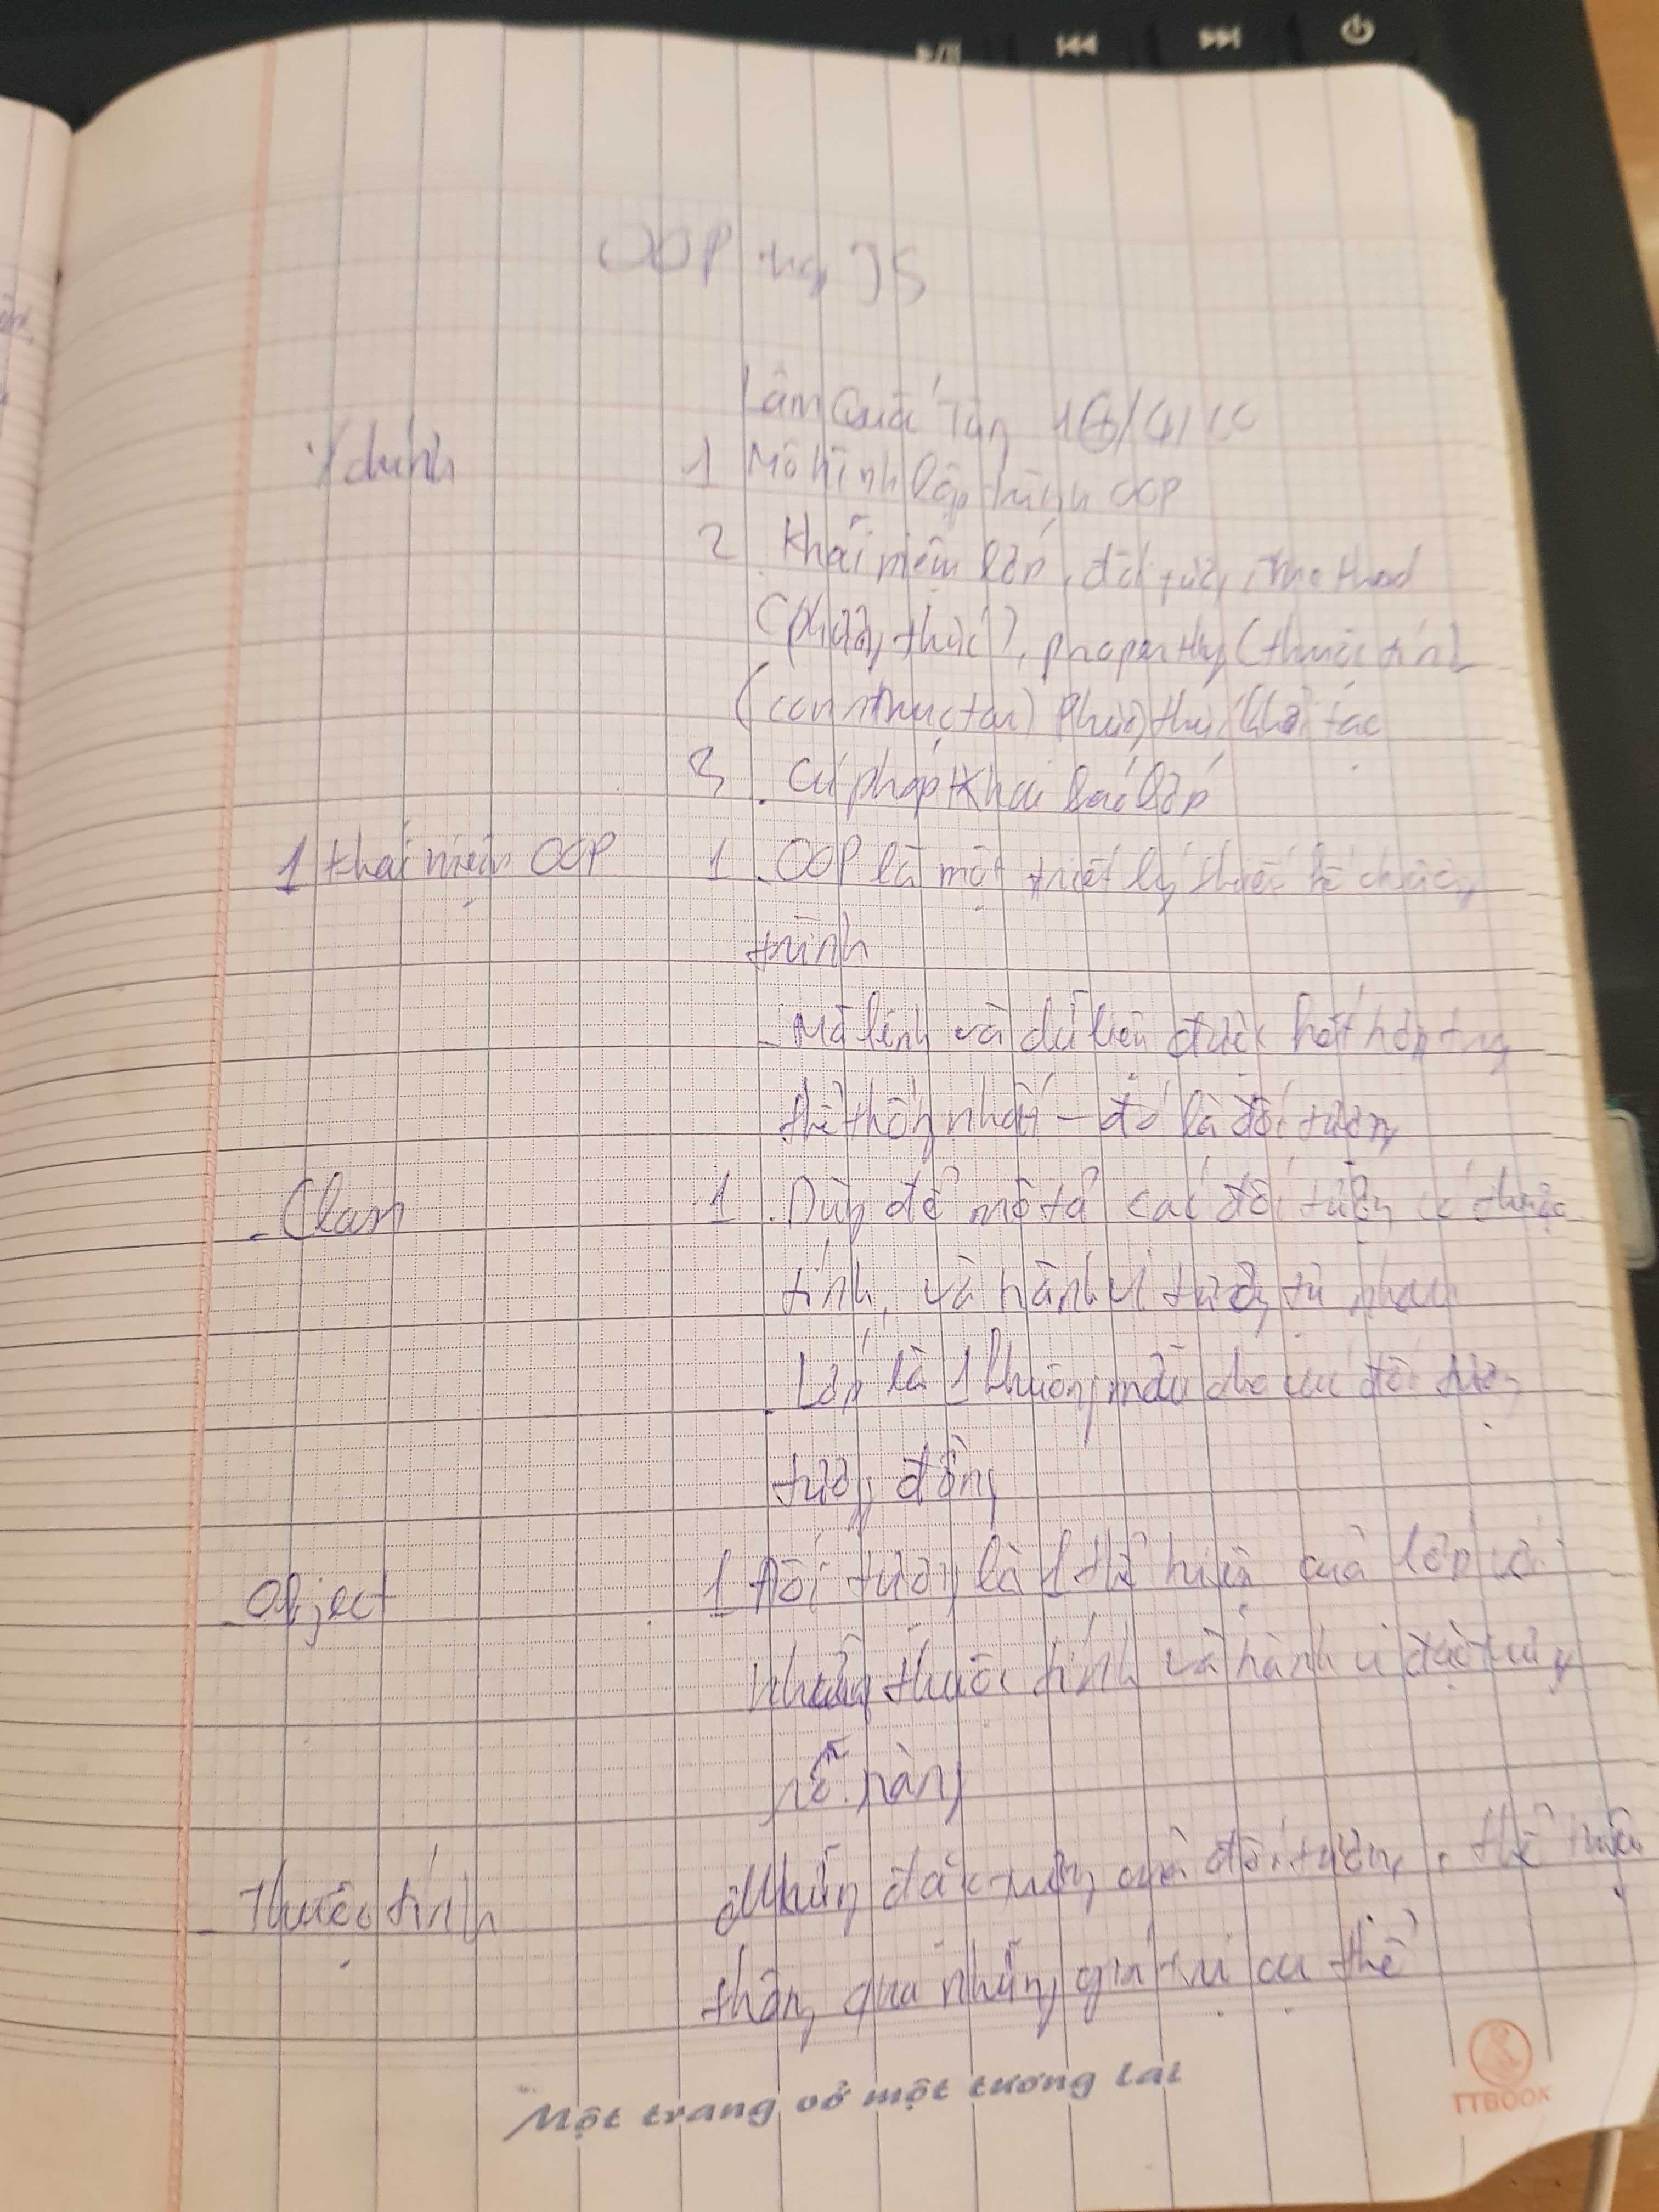 OOP trg JS
Lâm Quốc Tùng
Ý chính
1 Mô hình lập trình OOP
2. Khái niệm lớp, đối tượng, method
(phương thức), property (thuộc tính)
(constructor) Phương thức khởi tạo
3. Cú pháp khai báo lớp
1 Khái niệm OOP
1. OOP là một triết lý thiết kế chương
trình
- Mã lệnh và dữ liệu được kết hợp trg
thể thống nhất - đó là đối tượng
- Class
1. Dùng để mô tả các đối tượng có thuộc
tính, và hành vi tương tự nhau
. Lớp là 1 khuôn mẫu cho các đối tượng
tương đồng
- Object
1 Đối tượng là 1 thể hiện của lớp với
những thuộc tính và hành vi được
rõ ràng
- Thuộc tính
Những đặc trưng của đối tượng, thể hiện
thông qua những giá trị cụ thể
Một trang vở một tương lai
TTBOOK